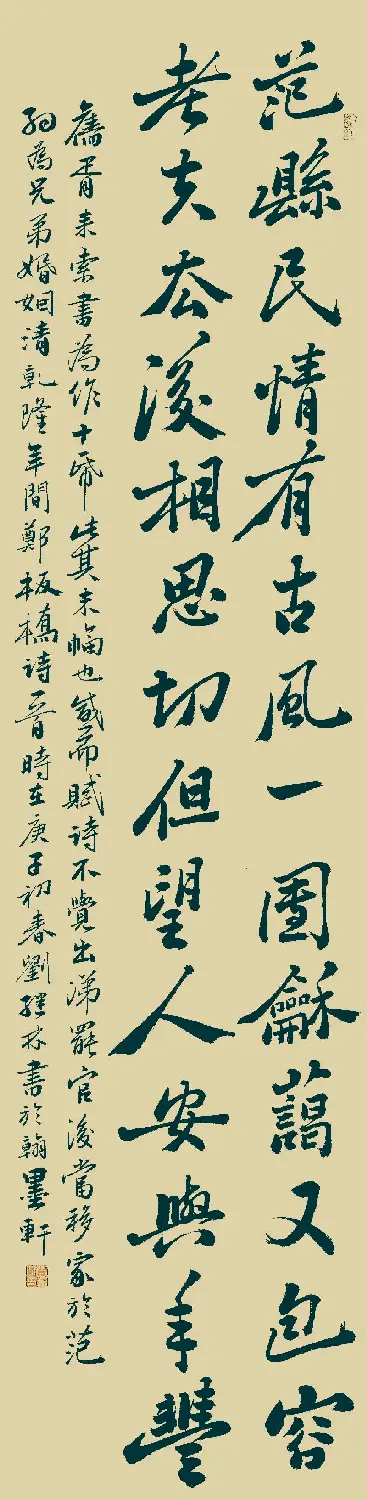 范縣民情有古風一團龢藹又包容
老夫去後相思切但望人安與年豐
舊胥来索書為作十帋此其末幅也感而賦詩不覺出涕罷官後當移家於范
約為兄弟婚姻清乾隆年間鄭板橋詩一首時在庚子初春劉林書於翰墨軒